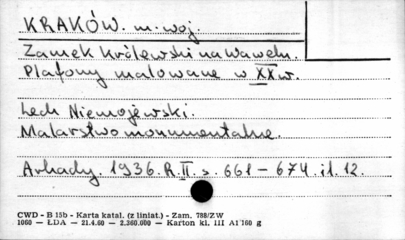 KRAKÓW. m. woj.
Zamek Królewski na Wawelu.
Plafony malowane w XX w.
Lech Niemojewski.
Malarstwo monumentalne.
Arkady. 1936. R. II. s. 661 – 674. il. 12.
CWD - B 15b - Karta katal. (z liniat.) - Zam. 788/ZW
1060 — ŁDA — 21.4.60 — 2.360.000 — Karton kl. III A1 160 g